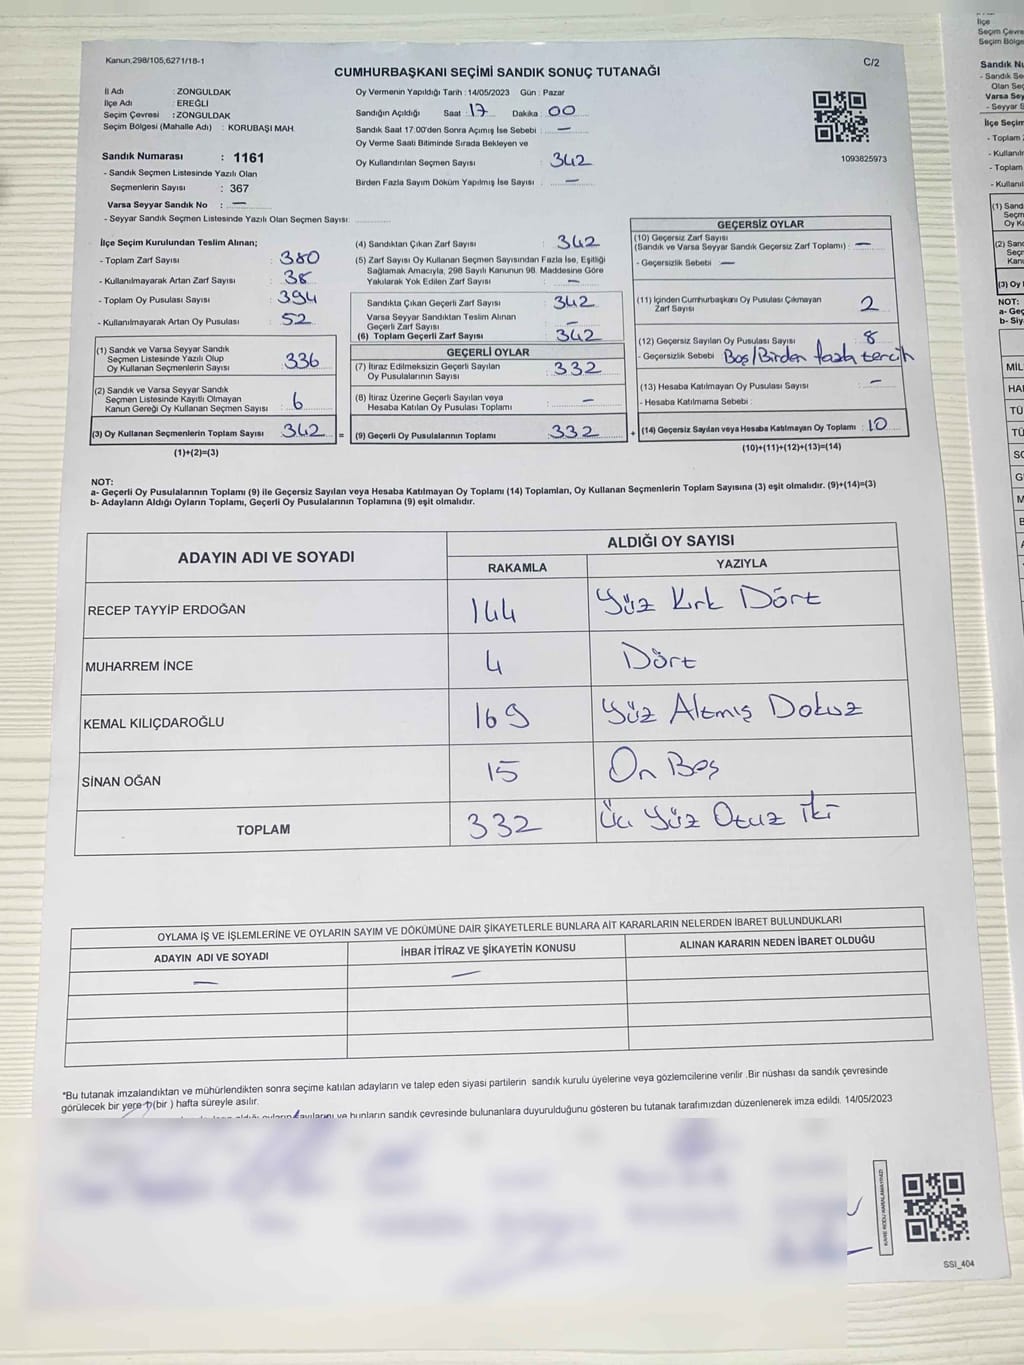 Kanun,298/105,6271/18-1
C/2
CUMHURBAŞKANI SEÇİMİ SANDIK SONUÇ TUTANAĞI
İl Adı : ZONGULDAK
İlçe Adı : EREĞLİ
Seçim Çevresi : ZONGULDAK
Seçim Bölgesi (Mahalle Adı) : KORUBAŞI MAH.
Sandık Numarası : 1161
- Sandık Seçmen Listesinde Yazılı Olan
Seçmenlerin Sayısı : 367
Varsa Seyyar Sandık No : —
- Seyyar Sandık Seçmen Listesinde Yazılı Olan Seçmen Sayısı:
Oy Vermenin Yapıldığı Tarih : 14/05/2023 Gün : Pazar
Sandığın Açıldığı Saat 17 Dakika 00
Sandık Saat 17:00'den Sonra Açımış İse Sebebi : —
Oy Verme Saati Bitiminde Sırada Bekleyen ve
Oy Kullandırılan Seçmen Sayısı : 342
Birden Fazla Sayım Döküm Yapılmış İse Sayısı : —
1093825973
İlçe Seçim Kurulundan Teslim Alınan;
- Toplam Zarf Sayısı : 380
- Kullanılmayarak Artan Zarf Sayısı : 38
- Toplam Oy Pusulası Sayısı : 394
- Kullanılmayarak Artan Oy Pusulası : 52
(1) Sandık ve Varsa Seyyar Sandık
Seçmen Listesinde Yazılı Olup
Oy Kullanan Seçmenlerin Sayısı : 336
(2) Sandık ve Varsa Seyyar Sandık
Seçmen Listesinde Kayıtlı Olmayan
Kanun Gereği Oy Kullanan Seçmen Sayısı : 6
(3) Oy Kullanan Seçmenlerin Toplam Sayısı : 342 =
(1)+(2)=(3)
(4) Sandıktan Çıkan Zarf Sayısı : 342
(5) Zarf Sayısı Oy Kullanan Seçmen Sayısından Fazla İse, Eşitliği
Sağlamak Amacıyla, 298 Sayılı Kanunun 98. Maddesine Göre
Yakılarak Yok Edilen Zarf Sayısı : —
Sandıkta Çıkan Geçerli Zarf Sayısı : 342
Varsa Seyyar Sandıktan Teslim Alınan
Geçerli Zarf Sayısı : —
(6) Toplam Geçerli Zarf Sayısı : 342
GEÇERLİ OYLAR
(7) İtiraz Edilmeksizin Geçerli Sayılan
Oy Pusulalarının Sayısı : 332
(8) İtiraz Üzerine Geçerli Sayılan veya
Hesaba Katılan Oy Pusulası Toplamı : —
(9) Geçerli Oy Pusulalarının Toplamı : 332 +
GEÇERSİZ OYLAR
(10) Geçersiz Zarf Sayısı
(Sandık ve Varsa Seyyar Sandık Geçersiz Zarf Toplamı) : —
- Geçersizlik Sebebi : —
(11) İçinden Cumhurbaşkanı Oy Pusulası Çıkmayan
Zarf Sayısı : 2
(12) Geçersiz Sayılan Oy Pusulası Sayısı : 8
- Geçersizlik Sebebi Boş/Birden fazla tercih
(13) Hesaba Katılmayan Oy Pusulası Sayısı : —
- Hesaba Katılmama Sebebi :
(14) Geçersiz Sayılan veya Hesaba Katılmayan Oy Toplamı : 10
(10)+(11)+(12)+(13)=(14)
NOT:
a- Geçerli Oy Pusulalarının Toplamı (9) ile Geçersiz Sayılan veya Hesaba Katılmayan Oy Toplamı (14) Toplamları, Oy Kullanan Seçmenlerin Toplam Sayısına (3) eşit olmalıdır. (9)+(14)=(3)
b- Adayların Aldığı Oyların Toplamı, Geçerli Oy Pusulalarının Toplamına (9) eşit olmalıdır.
ADAYIN ADI VE SOYADI ALDIĞI OY SAYISI
RAKAMLA YAZIYLA
RECEP TAYYİP ERDOĞAN 144 Yüz Kırk Dört
MUHARREM İNCE 4 Dört
KEMAL KILIÇDAROĞLU 169 Yüz Altmış Dokuz
SİNAN OĞAN 15 On Beş
TOPLAM 332 Üç Yüz Otuz İki
OYLAMA İŞ VE İŞLEMLERİNE VE OYLARIN SAYIM VE DÖKÜMÜNE DAİR ŞİKAYETLERLE BUNLARA AİT KARARLARIN NELERDEN İBARET BULUNDUKLARI
ADAYIN ADI VE SOYADI İHBAR İTİRAZ VE ŞİKAYETİN KONUSU ALINAN KARARIN NEDEN İBARET OLDUĞU
— —
*Bu tutanak imzalandıktan ve mühürlendikten sonra seçime katılan adayların ve talep eden siyasi partilerin sandık kurulu üyelerine veya gözlemcilerine verilir .Bir nüshası da sandık çevresinde
görülecek bir yere (bir ) hafta süreyle asılır.
ve bunların sandık çevresinde bulunanlara duyurulduğunu gösteren bu tutanak tarafımızdan düzenlenerek imza edildi. 14/05/2023
SSI_404